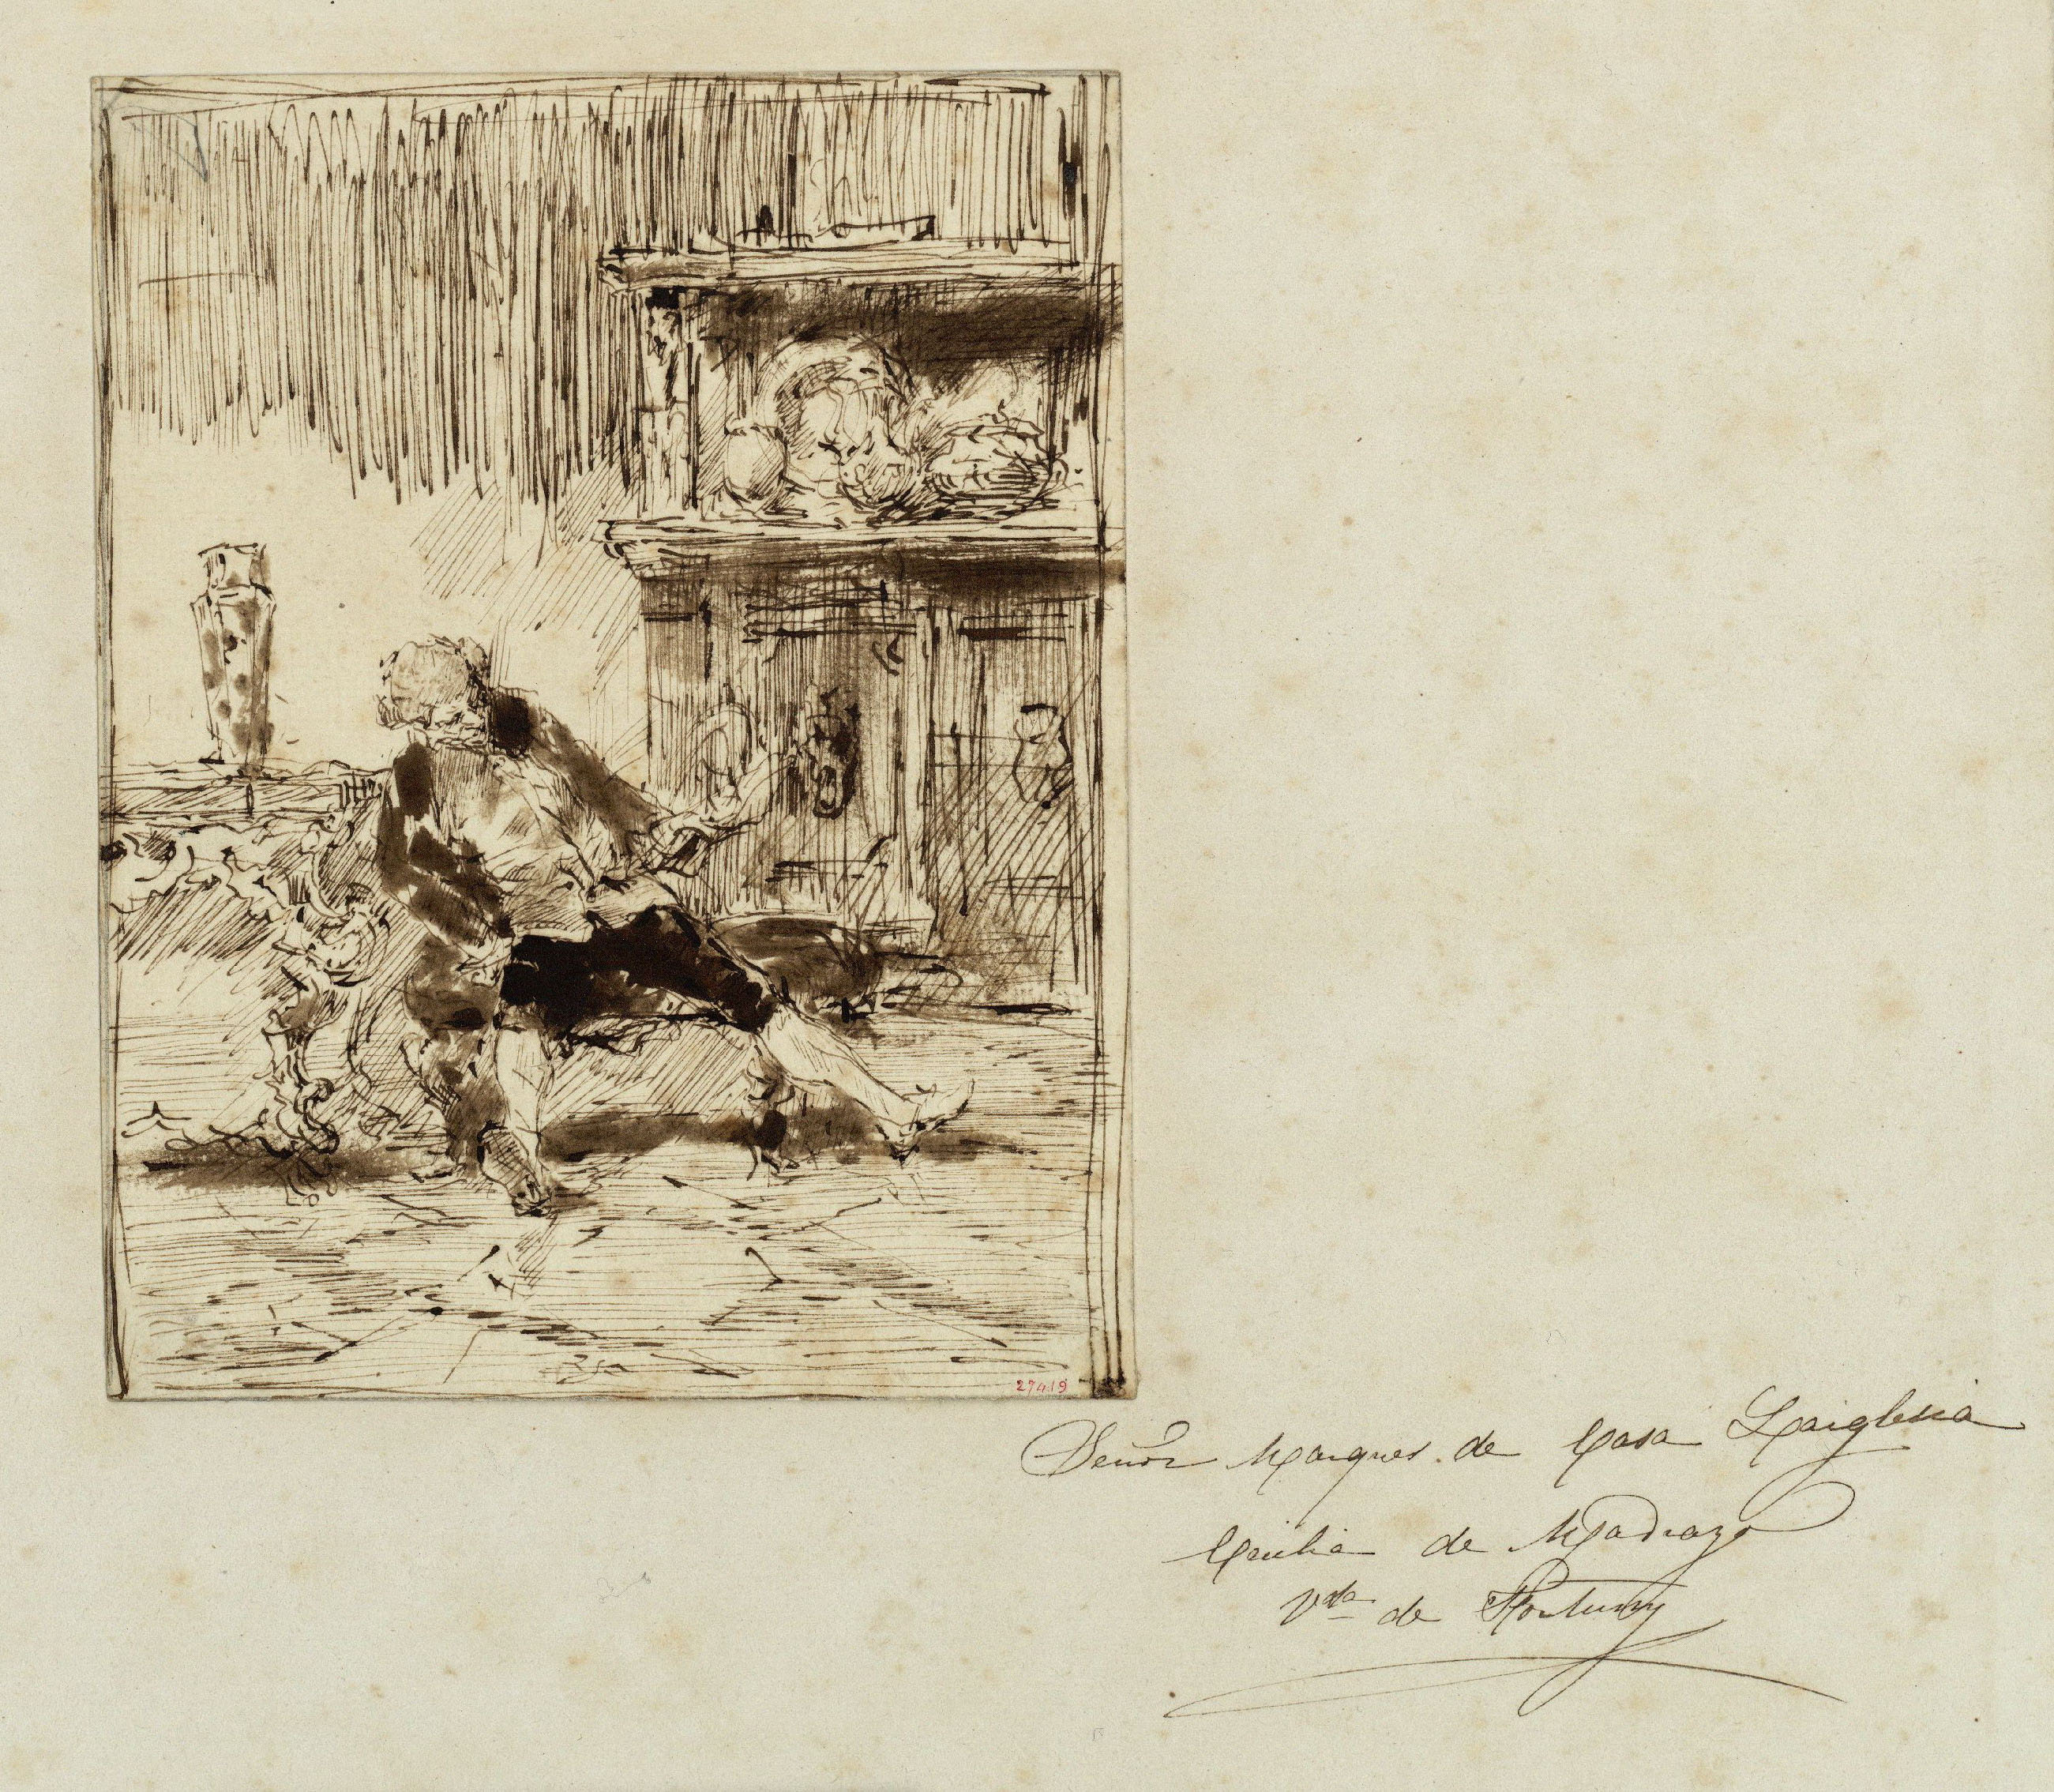 27419
Señor Marques de Casa Laiglesia
Cecilia de Madrazo
Vda de Fortuny